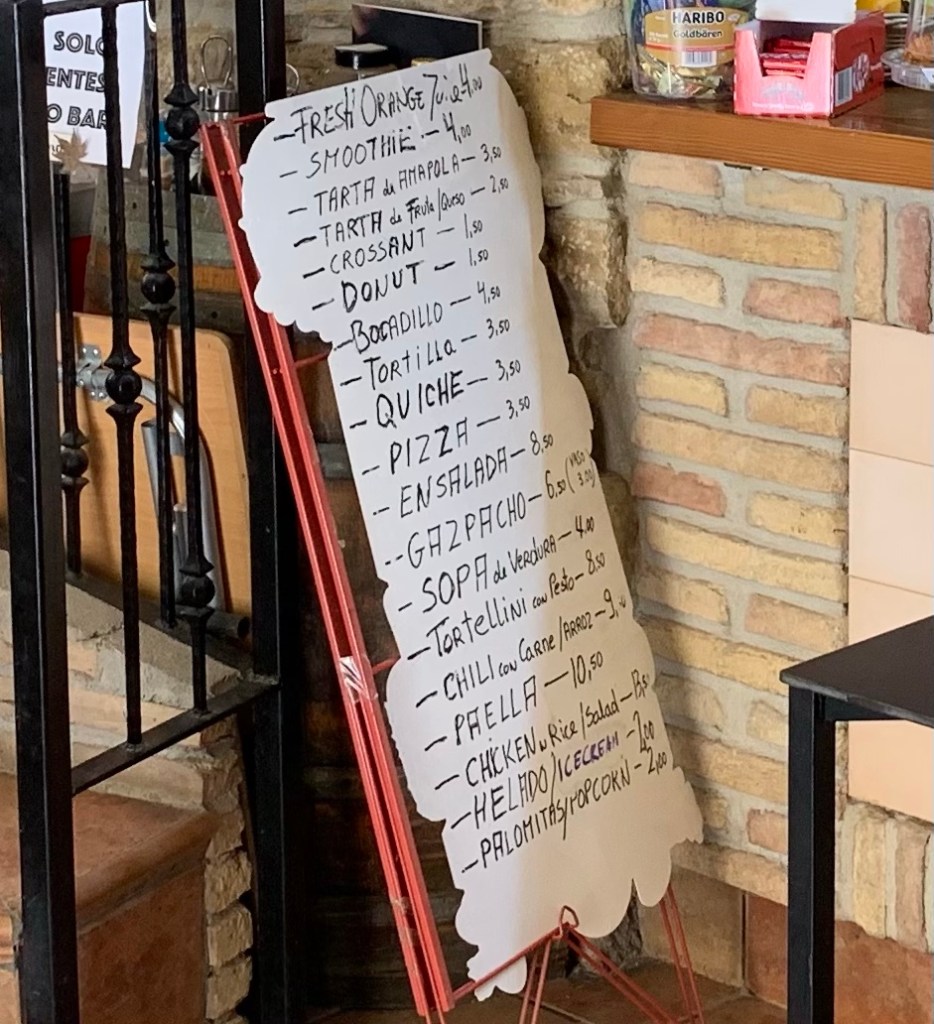 SOLO
ENTES
O BAR
HARIBO
Goldbären
- FRESH ORANGE Juice 4,00
- SMOOTHIE - 4,00
- TARTA de AMAPOLA - 3,50
- TARTA de Fruta/Queso - 2,50
- CROSSANT - 1,50
- DONUT - 1,50
- BOCADILLO - 4,50
- TORTILLA - 3,50
- QUICHE - 3,50
- PIZZA - 3,50
- ENSALADA - 8,50
- GAZPACHO - 6,50 (VASO 3.00)
- SOPA de Verdura - 4,00
- Tortellini con Pesto - 8,50
- CHILI con Carne/ARROZ - 9,-
- PAELLA - 10,50
- CHICKEN Rice/Salad - 13,5
- HELADO/ICECREAM - 2,00
- PALOMITAS/POPCORN - 2,00